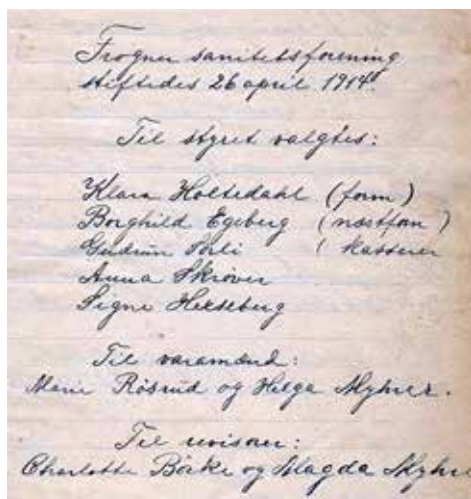 Frogner sanitetsforening
stiftedes 26 april 1914.
Til styret valgtes:
Klara Holtedahl (form)
Borghild Egeberg (næstform)
Gudrun Torli (kasserer
Anna Skrøver
Signe Hexeberg
Til varamænd:
Marie Røsrud og Helga Myhrer.
Til revisorer:
Charlotte Børke og Magda Myhre